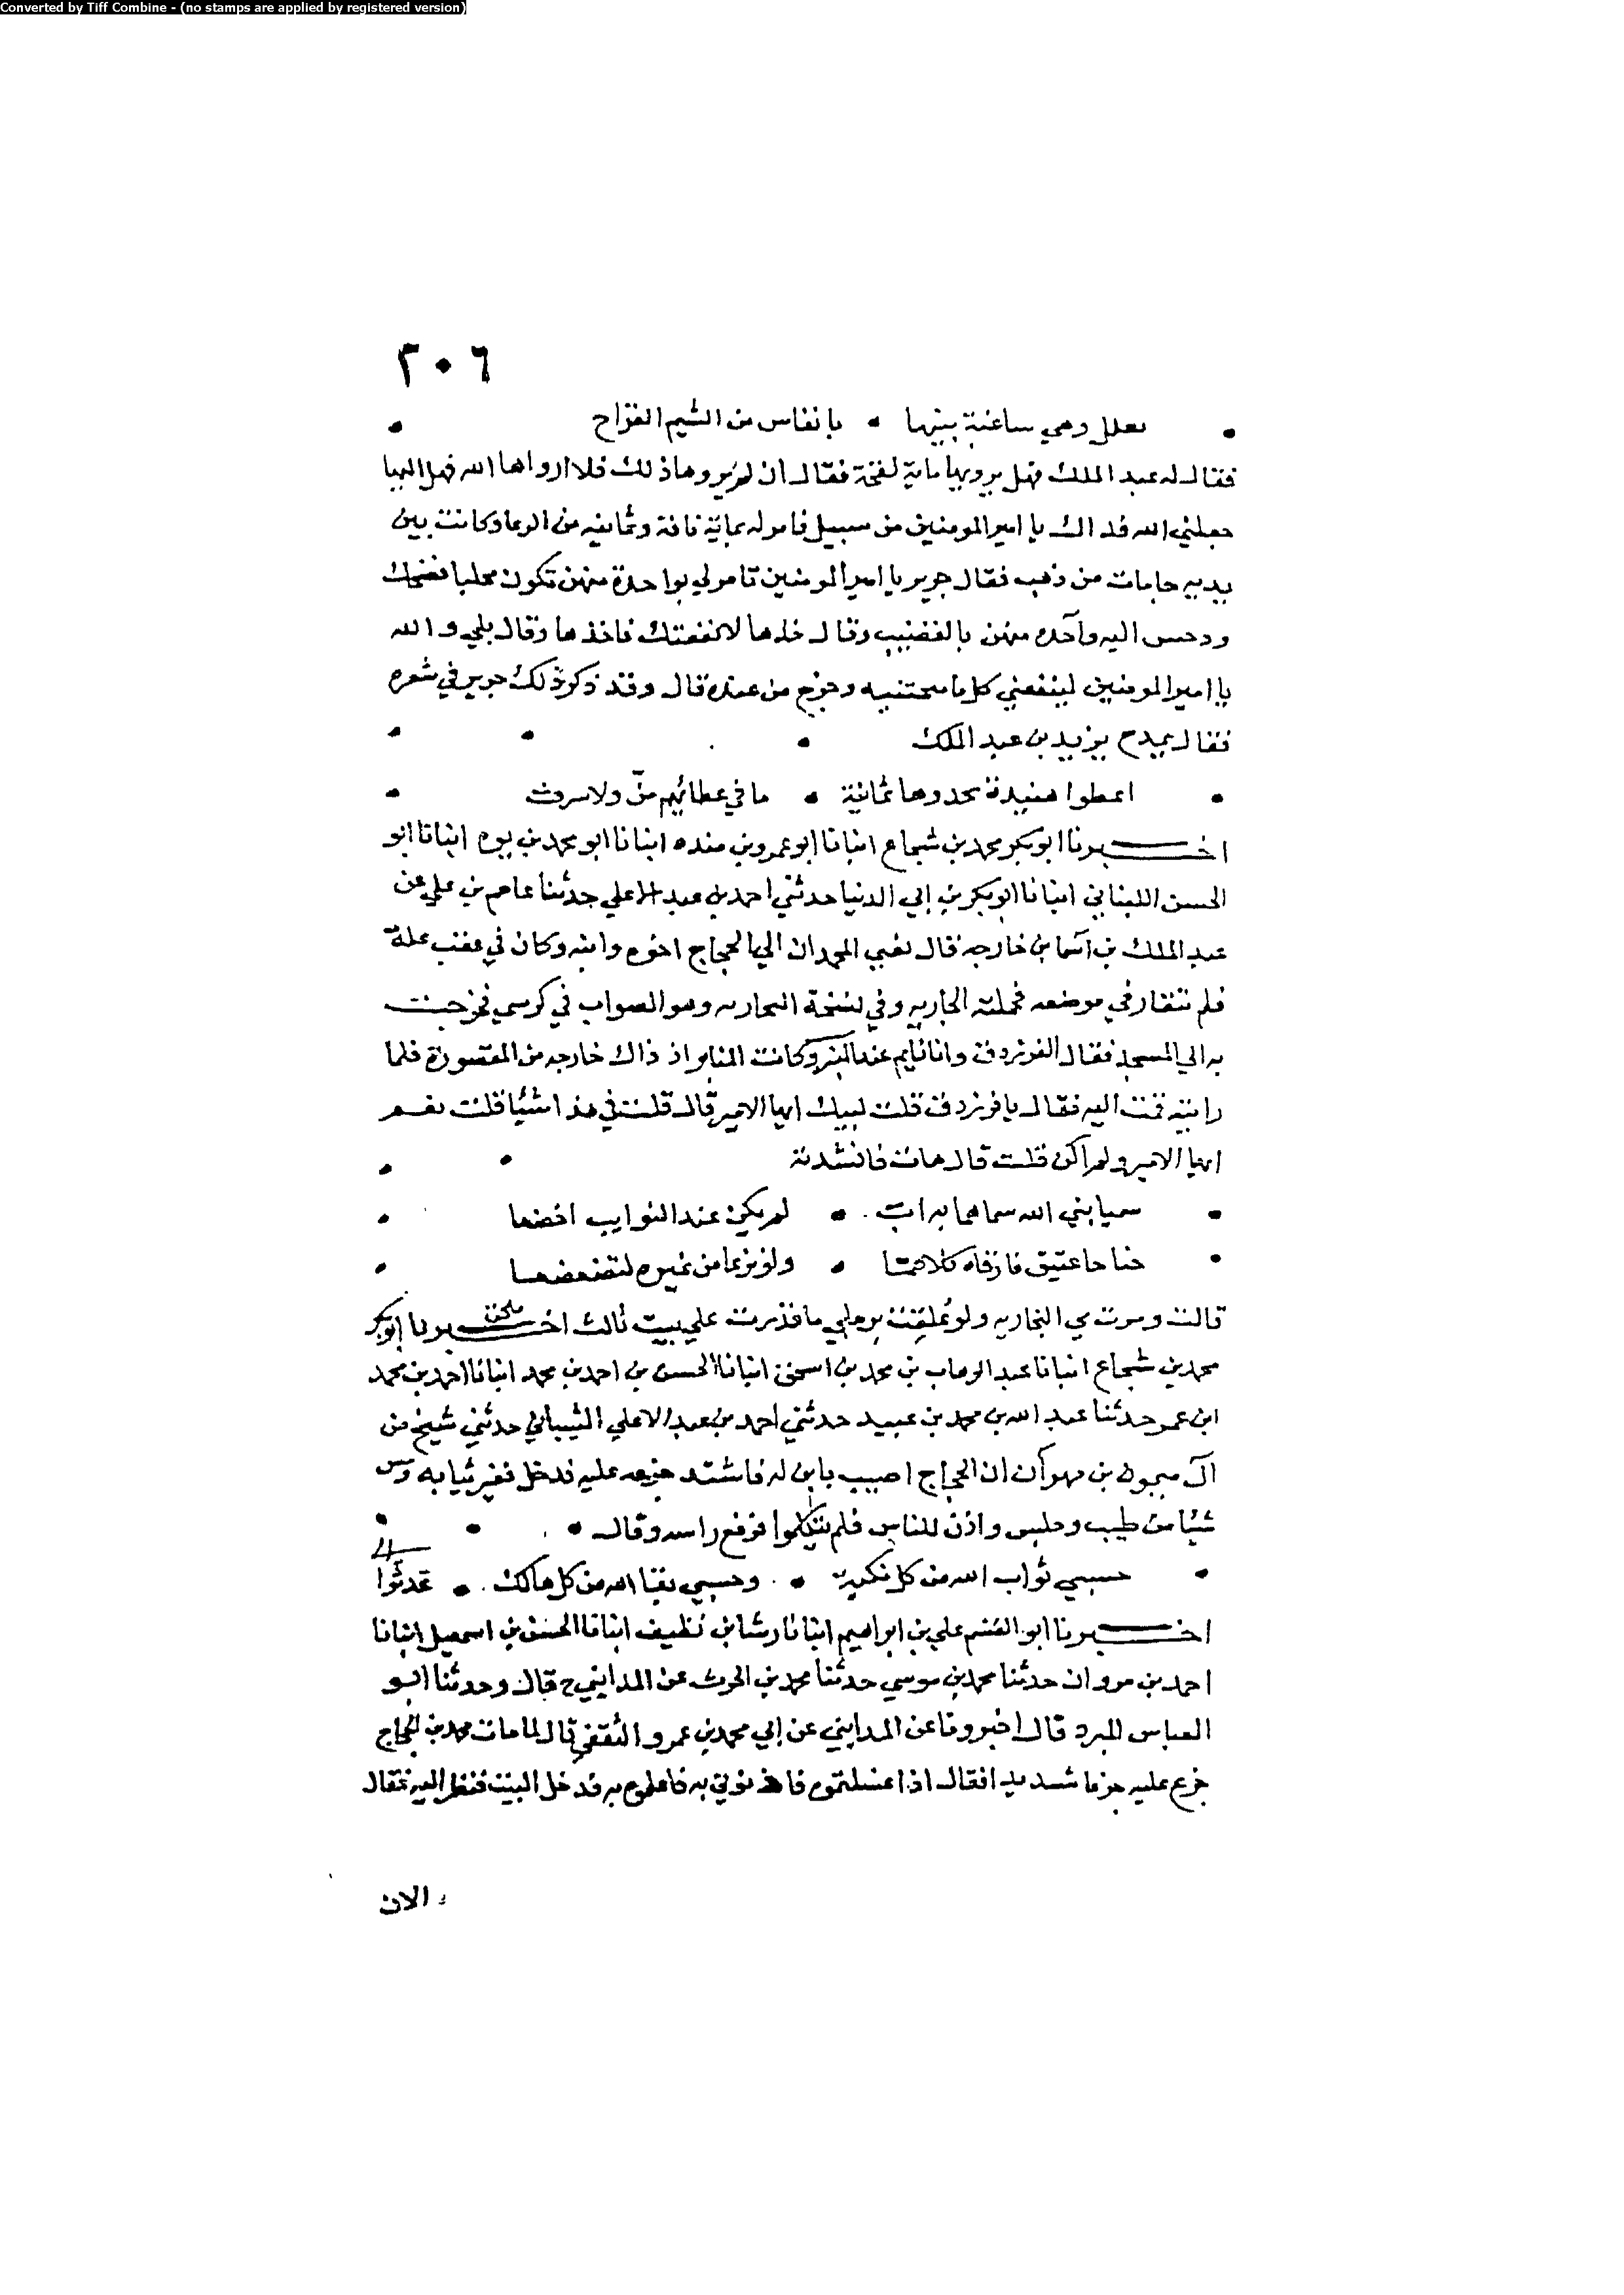 Converted by Tiff Combine - (no stamps are applied by registered version)
٣٠٦
تعلل وهي ساغبة بنيها • بانفاس من الشيم القراح
فقال له عبد الملك فهل يرويها ماية لقحة فقال ان لم يروها ذلك فلا ارواها الله فهل اليها
جعلني الله فداك يا امير المومنين من سبيل فامر له بماية ناقة وثمانيه من الرعا وكانت بين
يديه جامات من ذهب فقال جرير يا امير المومنين تامر لي بواحدة منهن تكون محلبا فضحك
ودحس اليه واحده منهن بالقضيب وقال خذها لا نفعتك فاخذها وقال بلي والله
يا امير المومنين لينفعني كل ما منحتنيه وخرج من عنده قال وقد ذكر ذلك جرير في شعره
فقال يمدح يزيد بن عبد الملك
اعطوا هنيدة تحدوها ثمانية • ما في عطائهم من ولا سرف
اخبرنا ابو بكر محمد بن شجاع انبانا ابو عمرو بن منده انبانا ابو محمد بن يوه انبانا ابو
الحسن اللبناني انبانا ابو بكر بن ابي الدنيا حدثني احمد بن عبد الاعلي حدثنا عاصم بن علي عن
عبد الملك بن اسما بن خارجه قال نعي المحمدان الي الحجاج اخوه وابنه وكان في عقب علة
فلم يتقار في موضعه فحملته الجاريه وفي نسخة البخاريه وهو الصواب في كرسي فخرجت
به الي المسجد فقال الفرزدق وانا نايم عند المنبر وكانت المنابر اذ ذاك خارجه من المقصورة فلما
رايته قمت اليه فقال يا فرزدق قلت لبيك ايها الامير قال قلت في هذا شيئا قلت نعم
ايها الامير ولم اكن قلت قال هات فانشدته
سميا نبي الله سماهما به اب • لم يكن عند النوايب اخضعا
جناحا عتيق فارقاه كلاهما • ولو نزعا من غيره لتضعضعا
قالت ومرت بي البخاريه ولو علقت برجلي ما قدرت علي بيت ثالث ملحق اخبرنا ابو بكر
محمد بن شجاع انبانا عبد الوهاب بن محمد بن اسحق انبانا الحسن بن احمد بن محمد انبانا احمد بن محمد
ابن عمر حدثنا عبد الله بن محمد بن عبيد حدثني احمد بن عبد الاعلي الشيباني حدثني شيخ من
ال ميمون بن مهران ان الحجاج اصيب بابن له فاشتد جزعه عليه فدخل فغير ثيابه ومس
شيئا من طيب وجلس واذن للناس فلم يتكلموا فرفع راسه وقال
حسبي ثواب الله من كل نكبة • وحسبي بقا الله من كل هالك • تحدثوا
اخبرنا ابو القسم علي بن ابراهيم انبانا رشا بن نظيف انبانا الحسن بن اسمعيل انبانا
احمد بن مروان حدثنا محمد بن موسي حدثنا محمد بن الحرث عن المدايني ح قال وحدثنا ابو
العباس المبرد قال اخبرونا عن المدايني عن ابي محمد بن عمرو الثقفي قال لما مات محمد بن الحجاج
جزع عليه جزعا شديدا فقال اذا غسلتموه فاذنوني به فاعلموه به فدخل البيت فنظر اليه فقال
الان